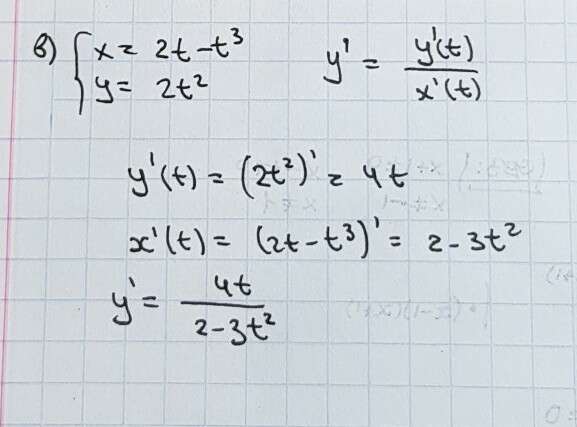 в) { x = 2t - t³   y' = y'(t) / x'(t)
y = 2t²
y'(t) = (2t²)' = 4t
x'(t) = (2t - t³)' = 2 - 3t²
y' = 4t / 2 - 3t²